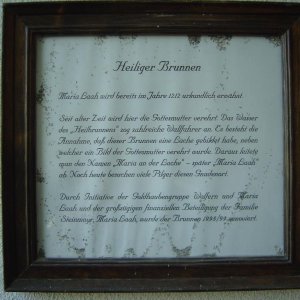 Heiliger Brunnen
Maria Laah wird bereits im Jahre 1212 urkundlich erwähnt.
Seit alter Zeit wird hier die Gottesmutter verehrt. Das Wasser
des "Heilbrunnens" zog zahlreiche Wallfahrer an. Es besteht die
Annahme, daß dieser Brunnen eine Lache gebildet habe, neben
welcher ein Bild der Gottesmutter verehrt wurde. Daraus leitete
man den Namen "Maria an der Lache" - später "Maria Laah"
ab. Noch heute besuchen viele Pilger diesen Gnadenort.
Durch Initiative der Goldhaubengruppe Wallern und Maria
Laah und der großzügigen finanziellen Beteiligung der Familie
Maria Laah, wurde der Brunnen renoviert.